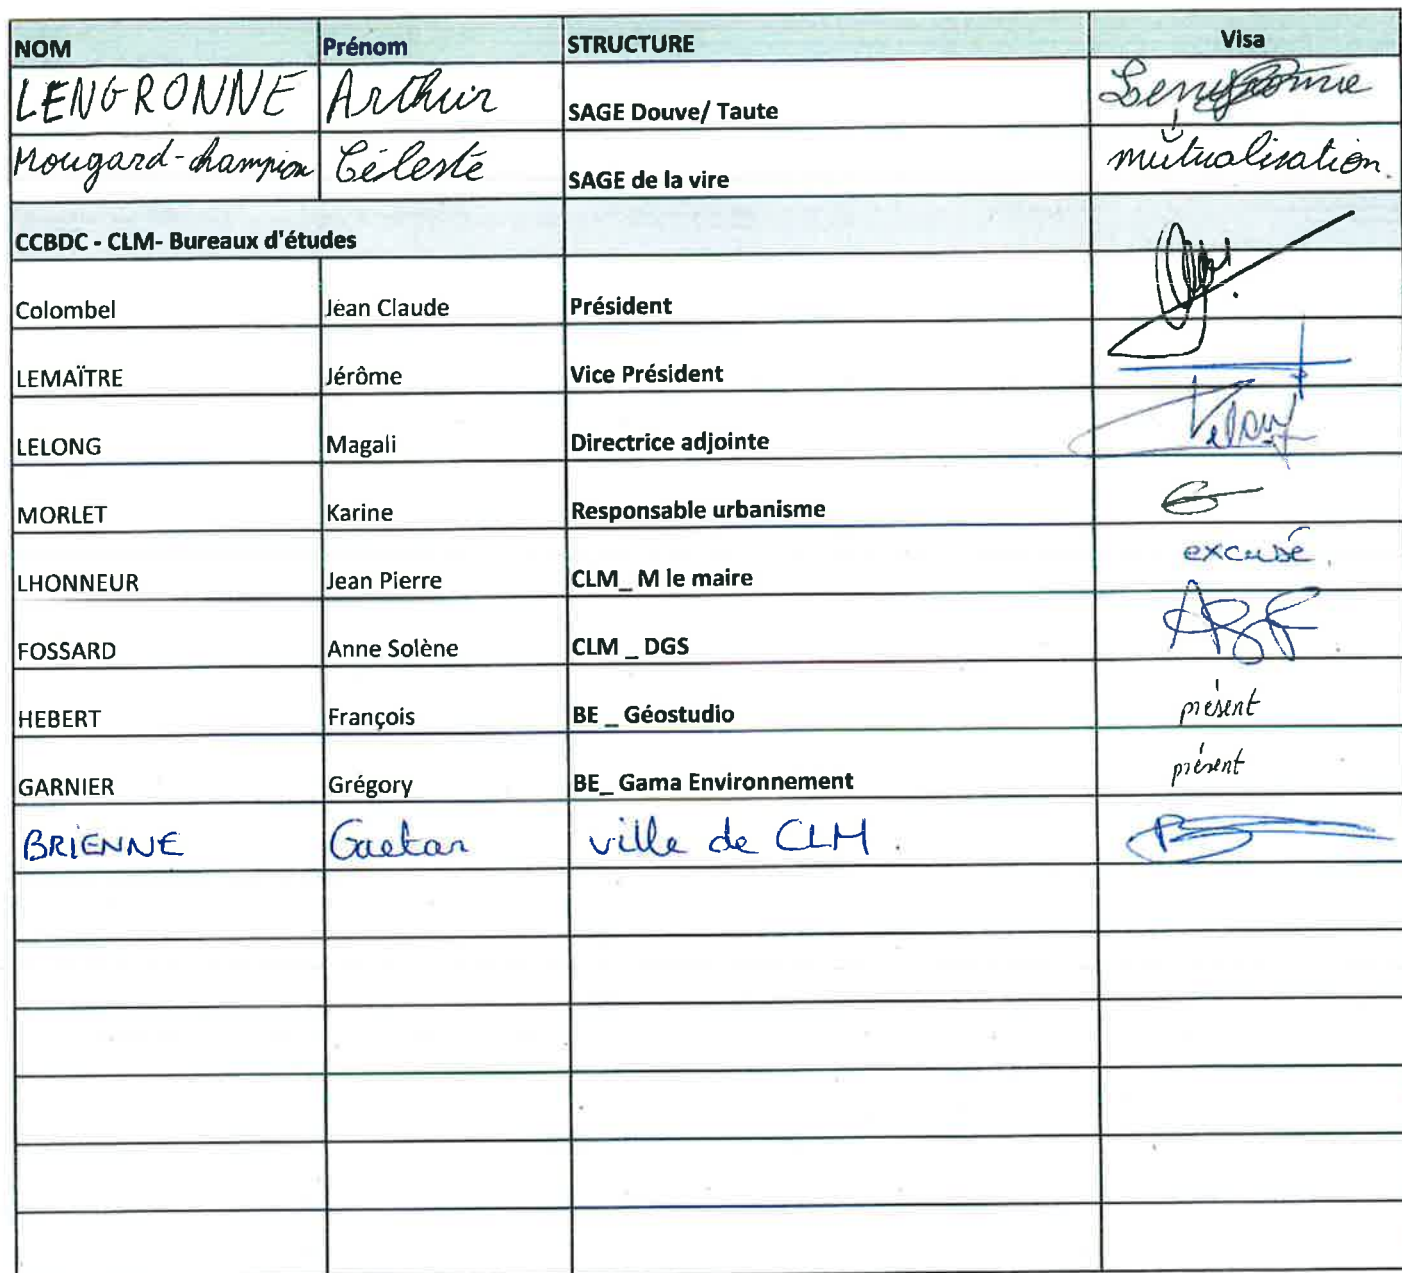 NOM Prénom STRUCTURE Visa
LENGRONNE Arthur SAGE Douve/ Taute Lengronne
Mougard-champion Céleste SAGE de la vire mutualisation.
CCBDC - CLM- Bureaux d'études
Colombel Jean Claude Président
LEMAÏTRE Jérôme Vice Président
LELONG Magali Directrice adjointe Lelong
MORLET Karine Responsable urbanisme
LHONNEUR Jean Pierre CLM_ M le maire excusé.
FOSSARD Anne Solène CLM _ DGS ASF
HEBERT François BE _ Géostudio présent
GARNIER Grégory BE_ Gama Environnement présent
BRIENNE Gaetan ville de CLM.